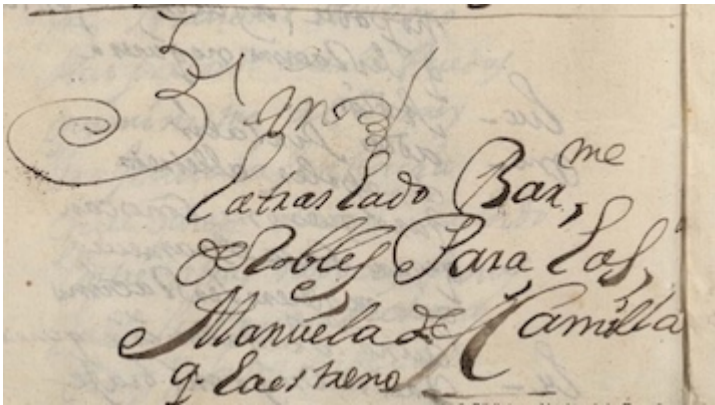 Fin
La trasLado Bar^me
de Robles Para Las,
Manuela de
q. La estreno